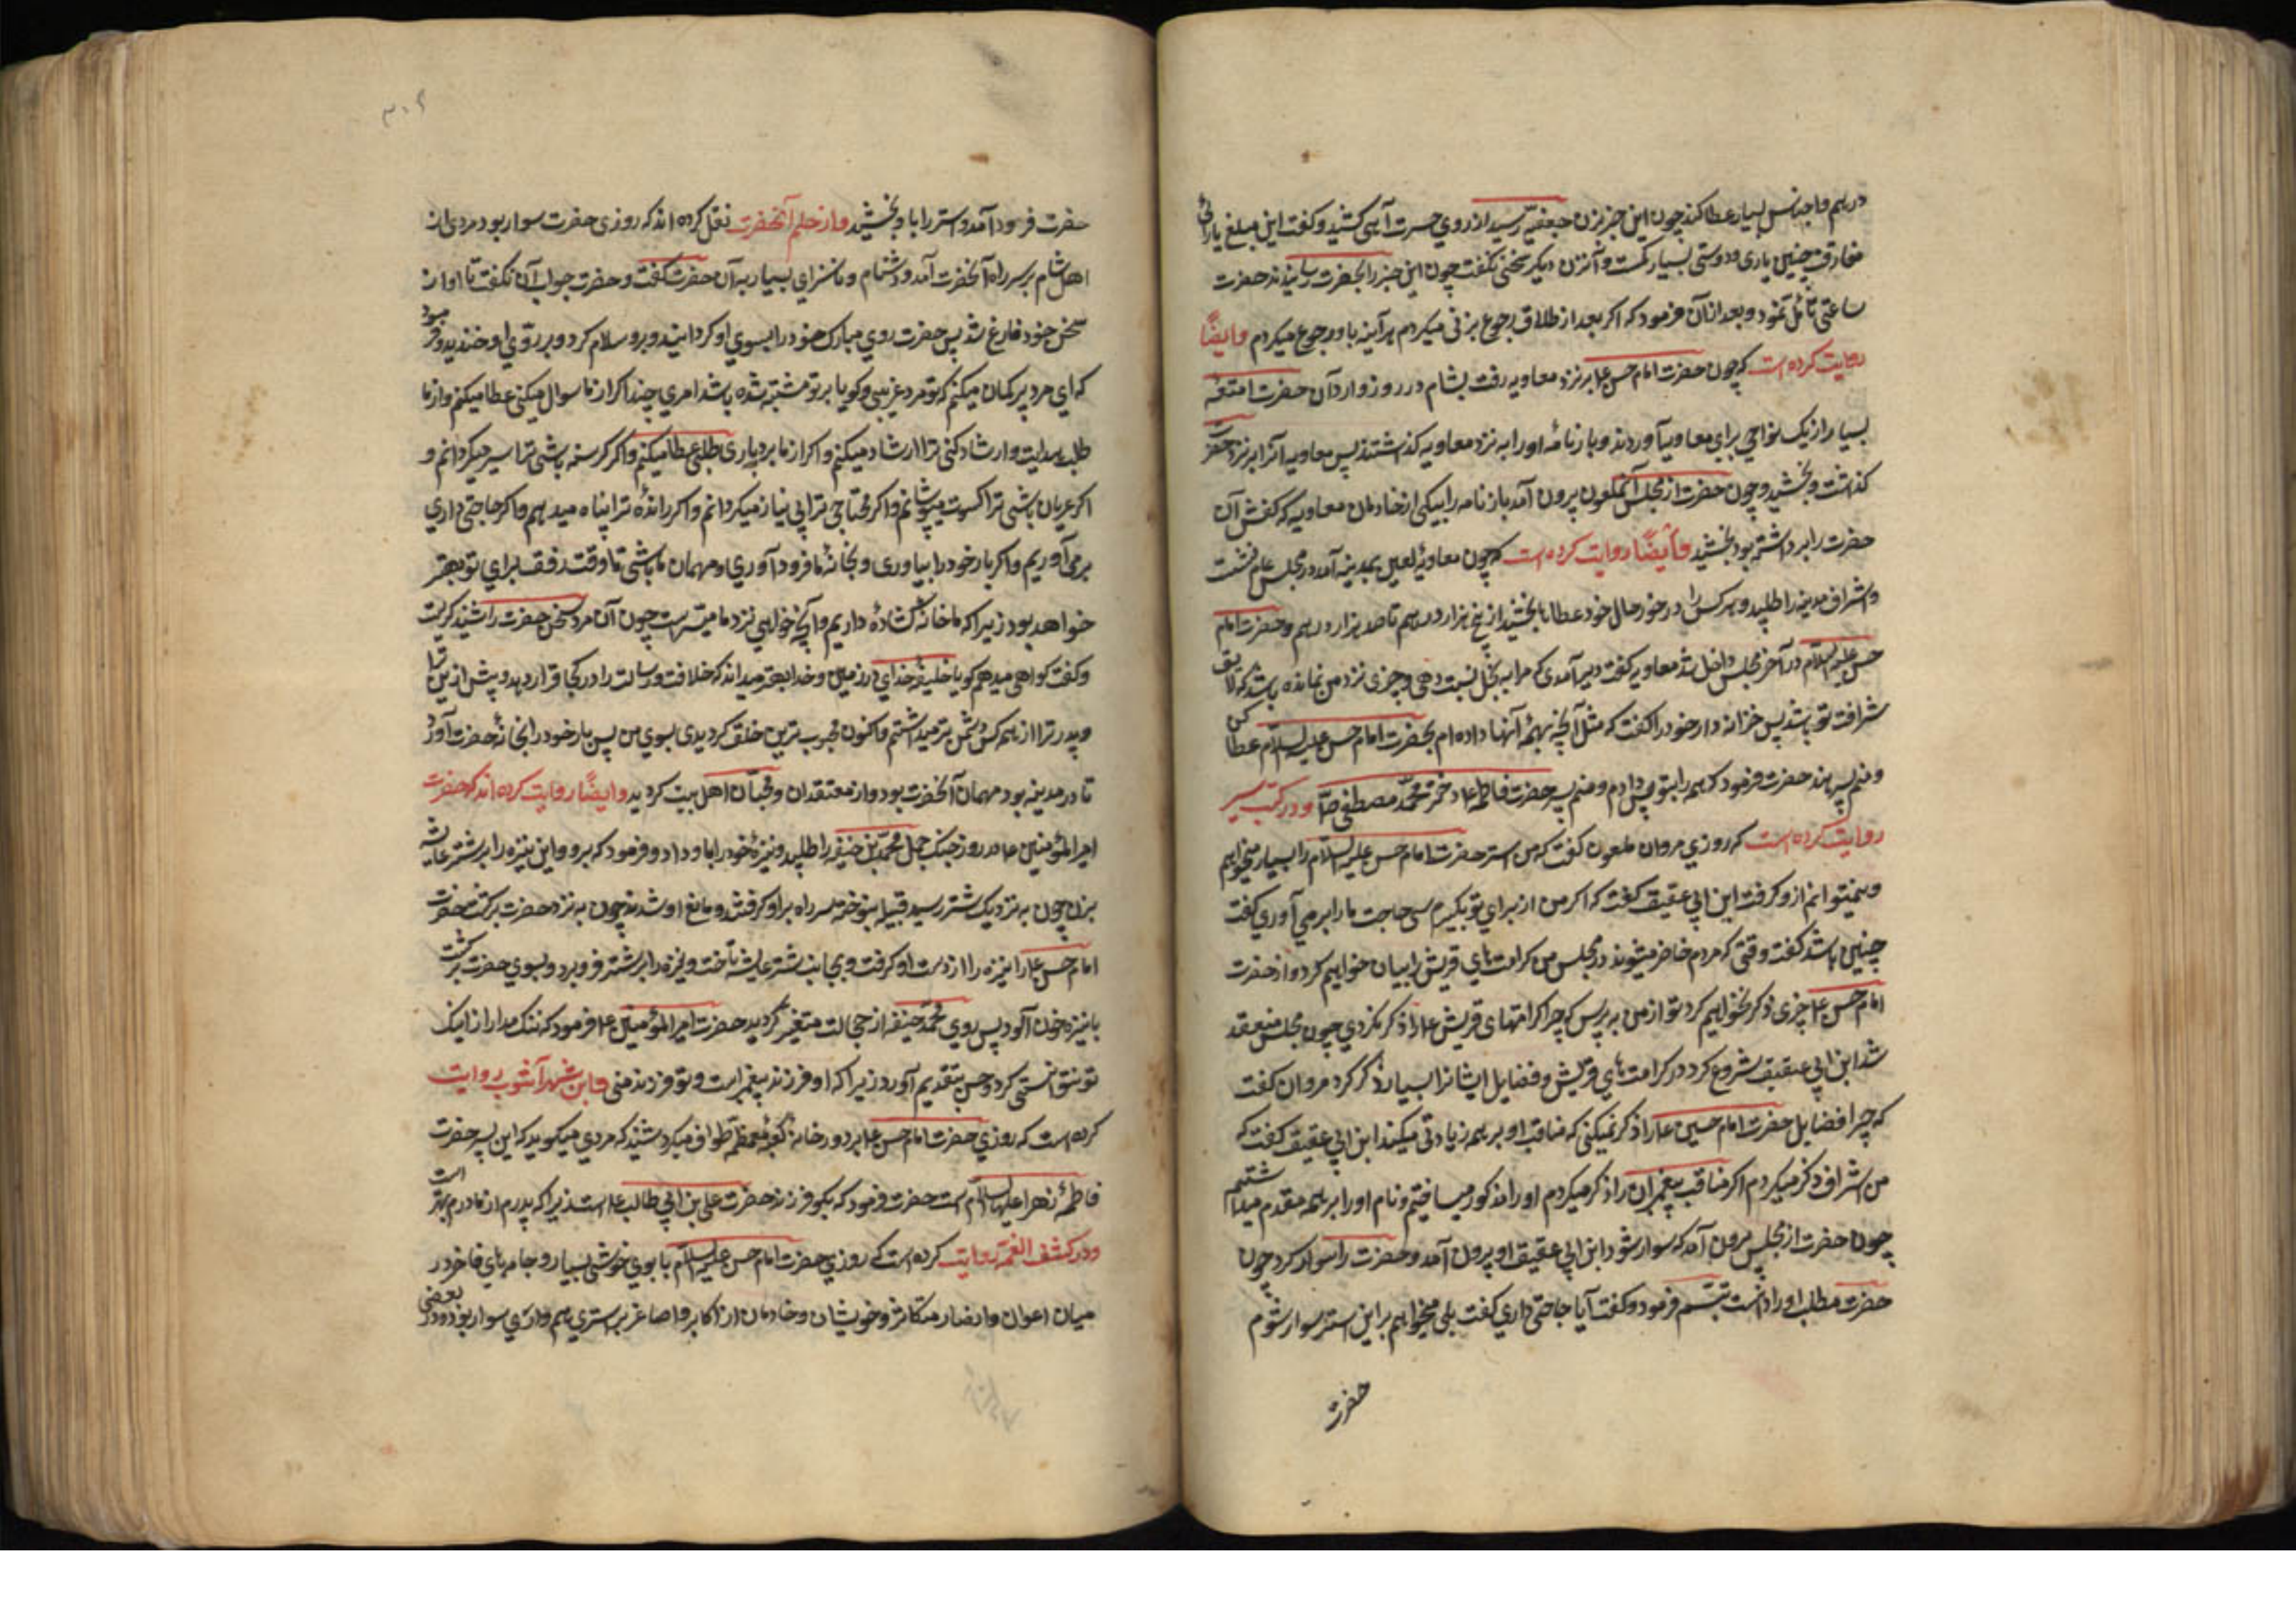 درهم و اجناس بسیار عطا کند چون این خبر بزن جعفیه رسید از روی حسرت آهی کشید و گفت این مبلغ یا برائ
مفارقت چنین یاری و دوستی بسیار کمست و آنزن دیکر سخنی نکفت چون این خبر را بحضرت رسانیدند حضرت
ساعتی تأمل نمود و بعد از آن فرمود که اکر بعد از طلاق رجوع بزنی میکردم هرآینه باو رجوع میکردم وایضًا
روایت کرده است که چون حضرت امام حسن ع بر نزد معاویه رفت بشام در روز وارد آن حضرت امتعه
بسیار از یک نواحی برای معاویه آوردند و بارنامه او را به نزد معاویه کذاشتند پس معاویه آنرا بر نزد حضرت
کذاشت و بخشید و چون حضرت از مجلس آنملعون بیرون آمد بارنامه را بیکی از خادمان معاویه که کفش آن
حضرت را برداشته بود بخشید وأیضًا روایت کرده است که چون معاویهٔ لعین بمدینه آمد در مجلس عام نشست
و اشراف مدینه را طلبید و هر کس را در خور حال خود عطاها بخشید از پنج هزار درهم تا صد هزار درهم و حضرت امام
حسن علیه السلام در آخر مجلس داخل شد معاویه گفت دیر آمدی که مرا به بخل نسبت دهی و چیزی نزد من نمانده باشد که لایق
شرافت تو باشد پس خزانه دار خود را کفت که مثل آنچه بهمهٔ آنها داده ام بحضرت امام حسن علیه السلام عطا کن
و منم پسر هند حضرت فرمود که همه را بتو پس دادم و منم پسر حضرت فاطمه ع دختر محمّد مصطفی ص و در کتب سیر
روایت کرده است که روزی مروان ملعون کفت که من استر حضرت امام حسن علیه السلام را بسیار میخواهم
و نمیتوانم از و کرفت ابن ابی عقیق کفت که اکر من از برای تو بکیرم سی حاجت ما را بر می آوری کفت
چنین باشد کفت وقتی که مردم حاضر میشوند در مجلس من کرامتهای قریش را بیان خواهم کرد و از حضرت
امام حسن ع چیزی ذکر نخواهم کرد تو از من بپرس که چرا کرامتهای قریش ع را ذکر نکردی چون مجلس منعقد
شد ابن ابی عقیق شروع کرد در کرامتهای قریش و فضایل ایشانرا بسیار ذکر کرد مروان کفت
که چرا فضایل حضرت امام حسین ع را ذکر نمیکنی که مناقب او بر همه زیادتی میکند ابن ابی عقیق کفت که
من اشراف ذکر میکردم اکر مناقب پیغمبران را ذکر میکردم او را مذکور میساختیم و نام او را بر همه مقدم میداشتم
چون حضرت از مجلس بیرون آمد که سوار شود ابن ابی عقیق او بیرون آمد و حضرت را سوار کرد چون
حضرت مطلب او را دانست تبسّم فرمود و گفت آیا حاجتی داری کفت بلی میخواهم براین استر سوار شوم
حضرت
۳۰۶
حضرت فرود آمد و استر را باو بخشید و از حلم آنحضرت نقل کرده اند که روزی حضرت سوار بود مردی از
اهل شام بر سر راه آنحضرت آمد و دشنام و ناسزای بسیار به آن حضرت کفت و حضرت جواب آن نکفت تا او از
سخن خود فارغ شد پس حضرت روی مبارک خود را بسوی او کردانید و برو سلام کرد و بر روی او خندید و فرمود
که ای مرد پیر کمان میکنم که تو مرد غریبی و کویا بر تو مشتبه شده باشد امری چند اکر از ما سوال میکنی عطا میکنم و از ما
طلب هدایت و ارشاد کنی ترا ارشاد میکنم و اکر از ما بردباری طلبی عطا میکنم و اکر کرسنه باشی ترا سیر میکردانم و
اکر عریان باشی ترا کسوت میپوشانم و اکر محتاجی ترا بی نیاز میکردانم و اکر راندهٔ ترا پناه میدهم و اکر حاجتی داری
برمی آوریم و اکر بار خود را بیاوری و بخانهٔ ما فرود آوری و مهمان ما باشی تا وقت رفتن برای تو بهتر
خواهد بود زیرا که ما خانه کشادهٔ داریم و آنچه خواهی نزد ما میسّر است چون آن مرد سخن حضرت را شنید کریست
و کفت کواهی میدهم که تو یا خلیفهٔ خدای در زمین و خدا بهتر میداند که خلافت و رسالت را در کجا قرار دهد و پیش از این تا
و پدر ترا از همه کس دشمن تر میداشتم و اکنون محبوب ترین خلق کردیدی بسوی من پس بار خود را بخانهٔ حضرت آورد
تا در مدینه بود مهمان آنحضرت بود و از معتقدان و محبّان اهل بیت کردید وایضًا روایت کرده اند که حضرت
امیر المؤمنین ع در روز جنک جمل محمّد بن حنیفه را طلبید و نیزهٔ خود را باو داد و فرمود که برو و این نیزه را بر شتر عایشه
بزن چون به نزدیک شتر رسید قبیلهٔ بنو ضبه سر راه بر او کرفتند و مانع او شدند چون به نزد حضرت برکشت حضرت
امام حسن ع را نیزه را از دست او کرفت و بجانب شتر عایشه تاخت و نیزه را بر شتر فرو برد و بسوی حضرت برکشت
با نیزهٔ خون آلود پس روی محمّد حنیفه از خجالت متغیر کردید حضرت امیر المؤمنین ع فرمود که ننک مدار از اینک
تو نتوانستی کرد و حسن بتقدیم آورد زیرا که او فرزند پیغمبر است و تو فرزند منی و ابن شهر آشوب روایت
کرده است که روزی حضرت امام حسن ع بر دور خانه کعبهٔ معظّمه طواف میکرد شنید که مردی میکوید که این پسر حضرت
فاطمهٔ زهرا علیها السلام است حضرت فرمود که بکو فرزند حضرت علی بن ابی طالب ع است زیرا که پدرم از مادرم بهتر است
و در کشف الغمّه روایت کرده است که روزی حضرت امام حسن علیه السلام با بوی خوشی بسیار و جامهای فاخر در
میان اعوان و انصار متکاثر و خویشان و خادمان از اکابر و اصاغر بر استری سوار بود و در بعضی